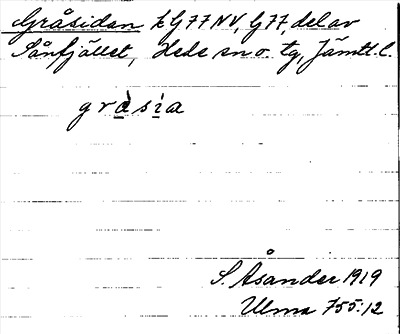 Gråsidan t. G77 NV, G77, del av
Sånfjället, Hede sn o. tg, Jämtl. l.
gràsia
S. Åsander 1919
Ulma 755:12